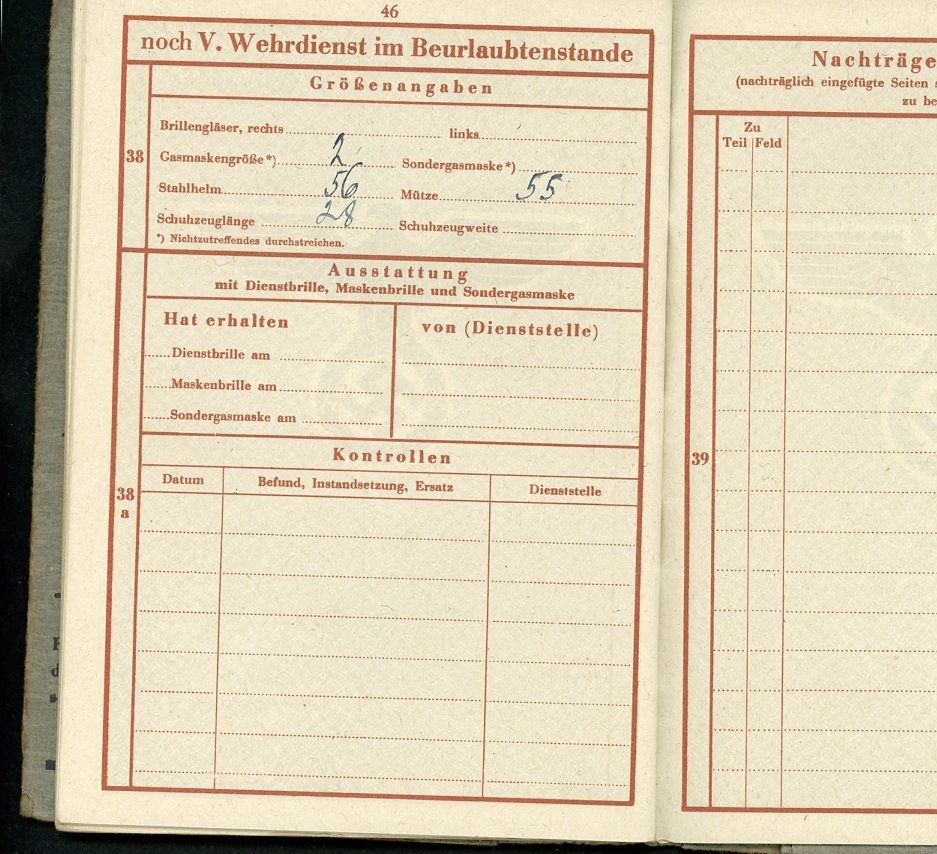 46
noch V. Wehrdienst im Beurlaubtenstande
Größenangaben
38
Brillengläser, rechts links
Gasmaskengröße*) 2 Sondergasmaske*)
Stahlhelm 56 Mütze 55
Schuhzeuglänge 28 Schuhzeugweite
*) Nichtzutreffendes durchstreichen.
38 a
Ausstattung
mit Dienstbrille, Maskenbrille und Sondergasmaske
Hat erhalten von (Dienststelle)
Dienstbrille am
Maskenbrille am
Sondergasmaske am
Kontrollen
Datum Befund, Instandsetzung, Ersatz Dienststelle
Nachträge
(nachträglich eingefügte Seiten
zu be
Zu
Teil Feld
39